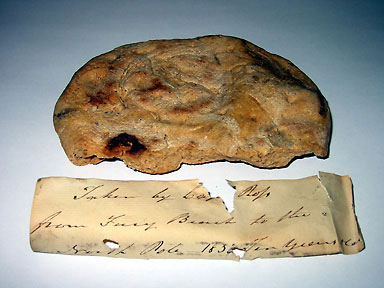 Taken by Cap Ross
from Fury Beach to the
North Pole 183 Ten Years